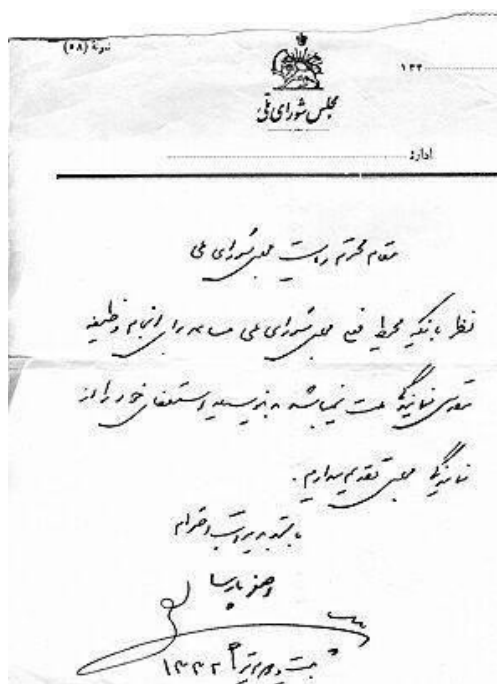 نمونهٔ (۵۸)
۱۳۳
مجلس شورای ملی
اداره:
مقام محترم ریاست مجلس شورای ملی
نظر باینکه محیط فعلی مجلس شورای ملی مساعد برای انجام وظیفه
مقدس نمایندگی ملت نمیباشد بدینوسیله استعفای خود را از
نمایندگی مجلس تقدیم میدارم.
با تقدیم مراتب احترام
اصغر پارسا
بیست و چهارم تیر ۱۳۳۲